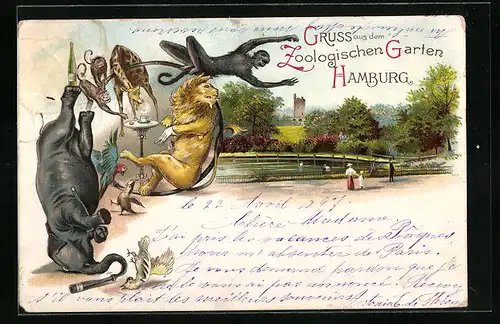 Gruss aus dem
Zoologischen Garten
Hamburg.
le 22 Avril 1897
Chère Madame.
J'ai pris les vacances de Pâques
pour m'absenter de Paris.
Je vous demand pardon que je
ne vous ai pas annoncé. Recevez
s'il vous plaît les meilleurs souvenirs